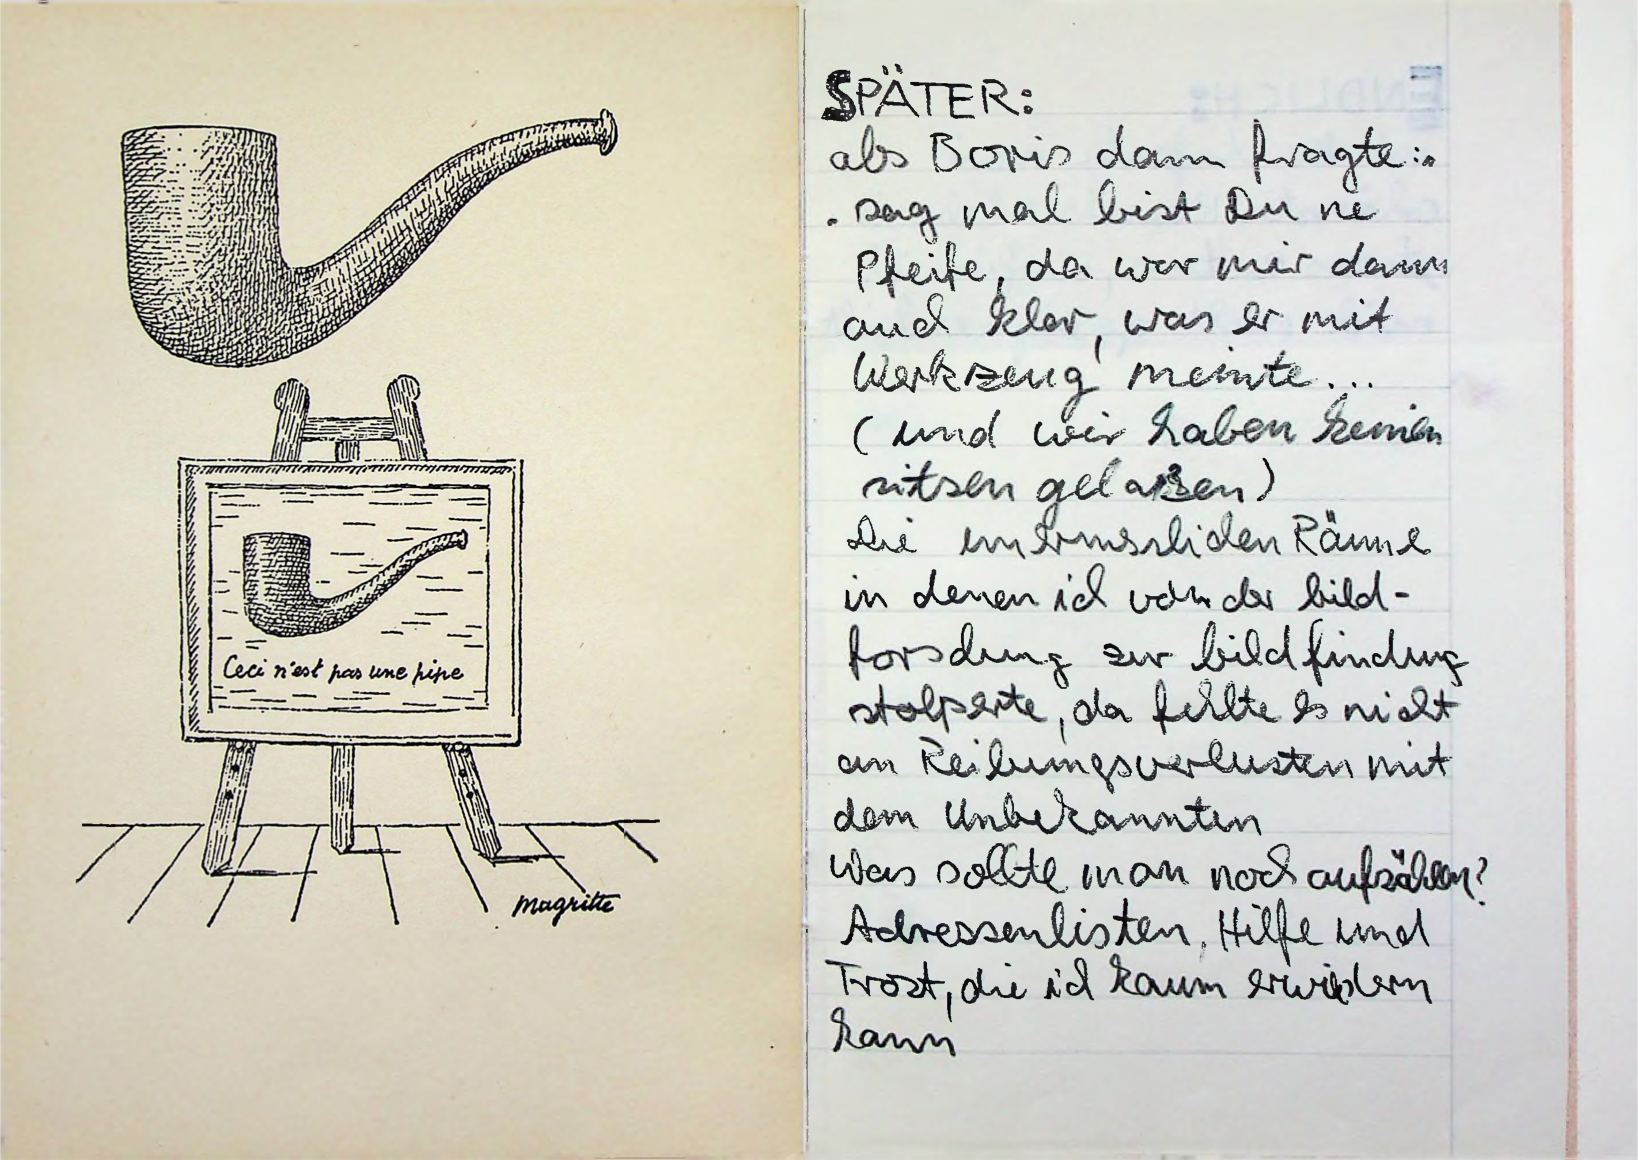 Ceci n'est pas une pipe
magritte
SPÄTER:
als Boris dann fragte:
. sag mal bist Du ne
Pfeife, da war mir dann
auch klar, was er mit
Werkzeug meinte...
(und wir haben keinen
sitzen gelassen)
Die unermesslichen Räume
in denen ich von der bild-
forschung zur bildfindung
stolperte, da fehlte es nicht
an Reibungsverlusten mit
dem Unbekannten
Was sollte man noch aufzählen?
Adressenlisten, Hilfe und
Trost, die ich kaum erwidern
kann